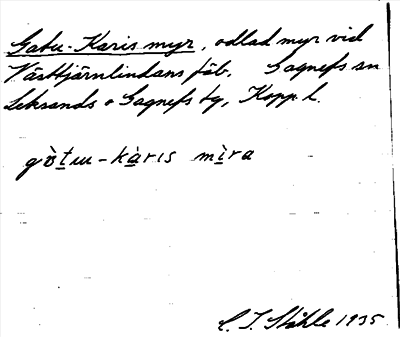 Gatu-Karis myr, odlad myr vid
Västtjärnlindans fäb. Gagnefs sn
Leksands o Gagnefs tg, Kopp. l.
gòtuu-kàrıs mìra
C. I. Ståhle 1935